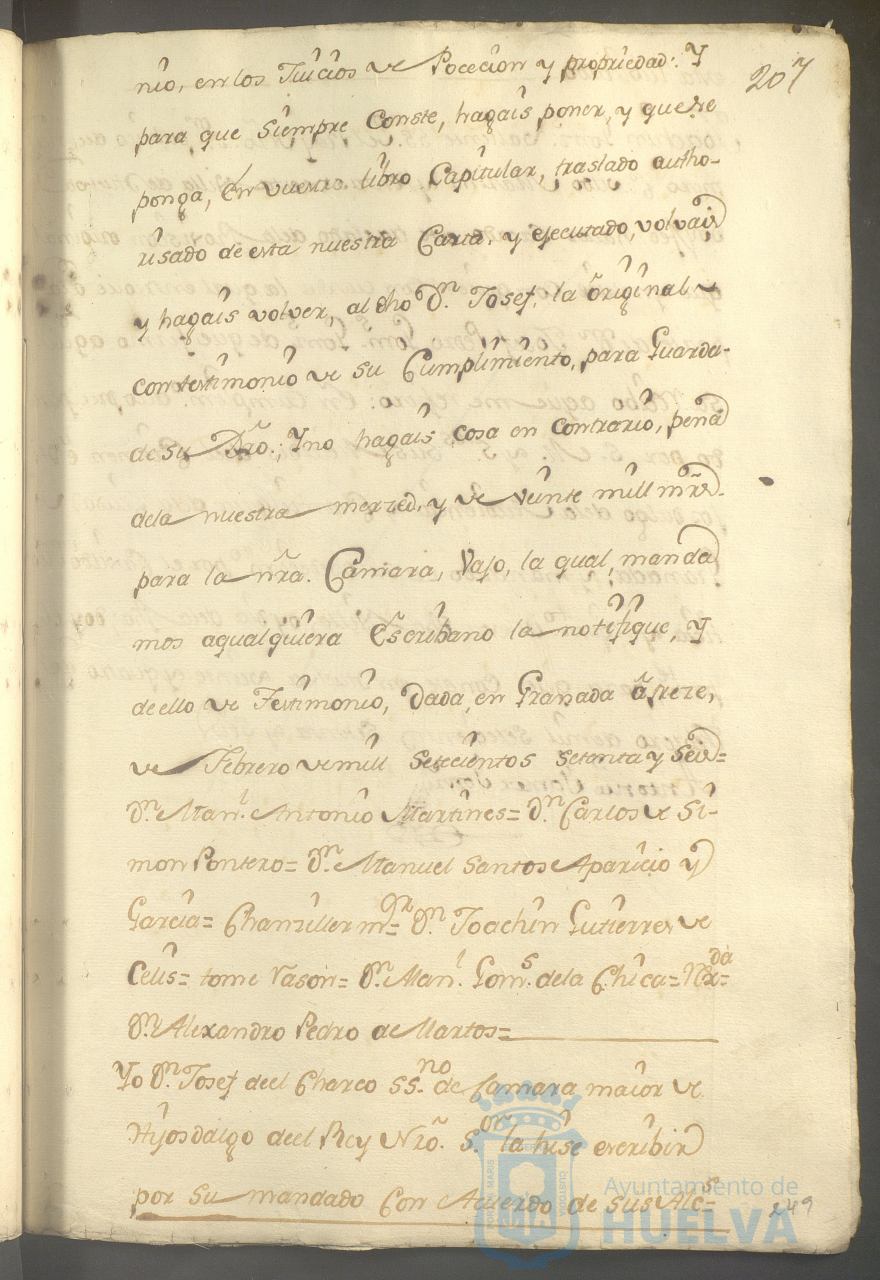 207
nio, en los Juicios de Pocecion y propriedad: Y
para que Siempre Conste, hagais poner, y que se
ponga, en vuestro libro Capitular, traslado autho-
risado de esta nuestra Carta, y ejecutado, volvais
y hagais volver, al dho Dn. Josef, la original
con testimonio de su Cumplimiento, para Guarda
de su Dro.; Y no hagais cosa en contrario, pena
dela nuestra merzed, y de veinte mill mrs.
para la nra. Camara, Vajo, la qual, manda
mos aqualquiera Escribano la notifique, Y
deello de Testimonio, Dada, en Granada a treze,
de Febrero de mill Setecientos setenta y Seis=
Dn. Manl. Antonio Martines= Dn. Carlos de Si-
mon Pontero= Dn. Manuel Santos Aparicio y
Garcia= Chanziller mor= Dn. Joachin Gutierres de
Celis= tome Rason= Dn. Manl. Goms. dela Chica= Rexda=
Dn. Alexandro Pedro de Martos=
Yo Dn. Josef deel Charco SSno. de Camara maior de
Hijosdalgo deel Rey Nro. Sor. la hise escribir
por su mandado Con Acuerdo de sus Alcs=
249
Ayuntamiento de
HUELVA